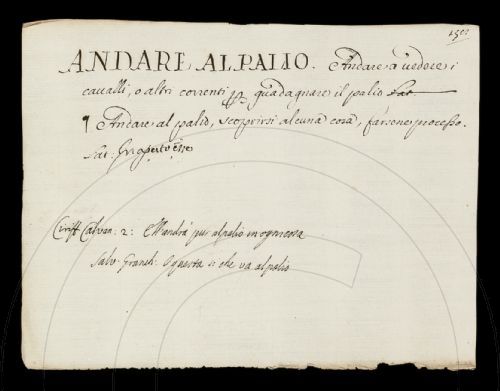 ANDARE AL PALIO. Andare a vedere i
cavalli, o altri correnti per guadagnare il palio
¶ Andare al palio, scoprirsi alcuna cosa, farsene processo.
Lat.
Ciriff. Calvan: 2: E andrà pur al palio in
Salv. Granch. Questa sì che va al palio